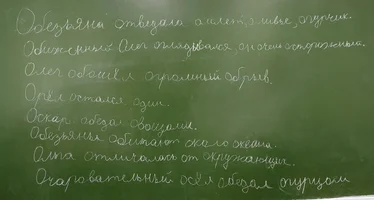 Обезьяна отведала омлет, оливье, огурчик.
Обиженный Олег оглядывался, он очень осторожный.
Олег обошёл огромный обрыв.
Орёл остался один.
Оскар обедал овощами.
Обезьяны обитают около океана.
Ольга отличалась от окружающих.
Очаровательный осёл обедал огурцами